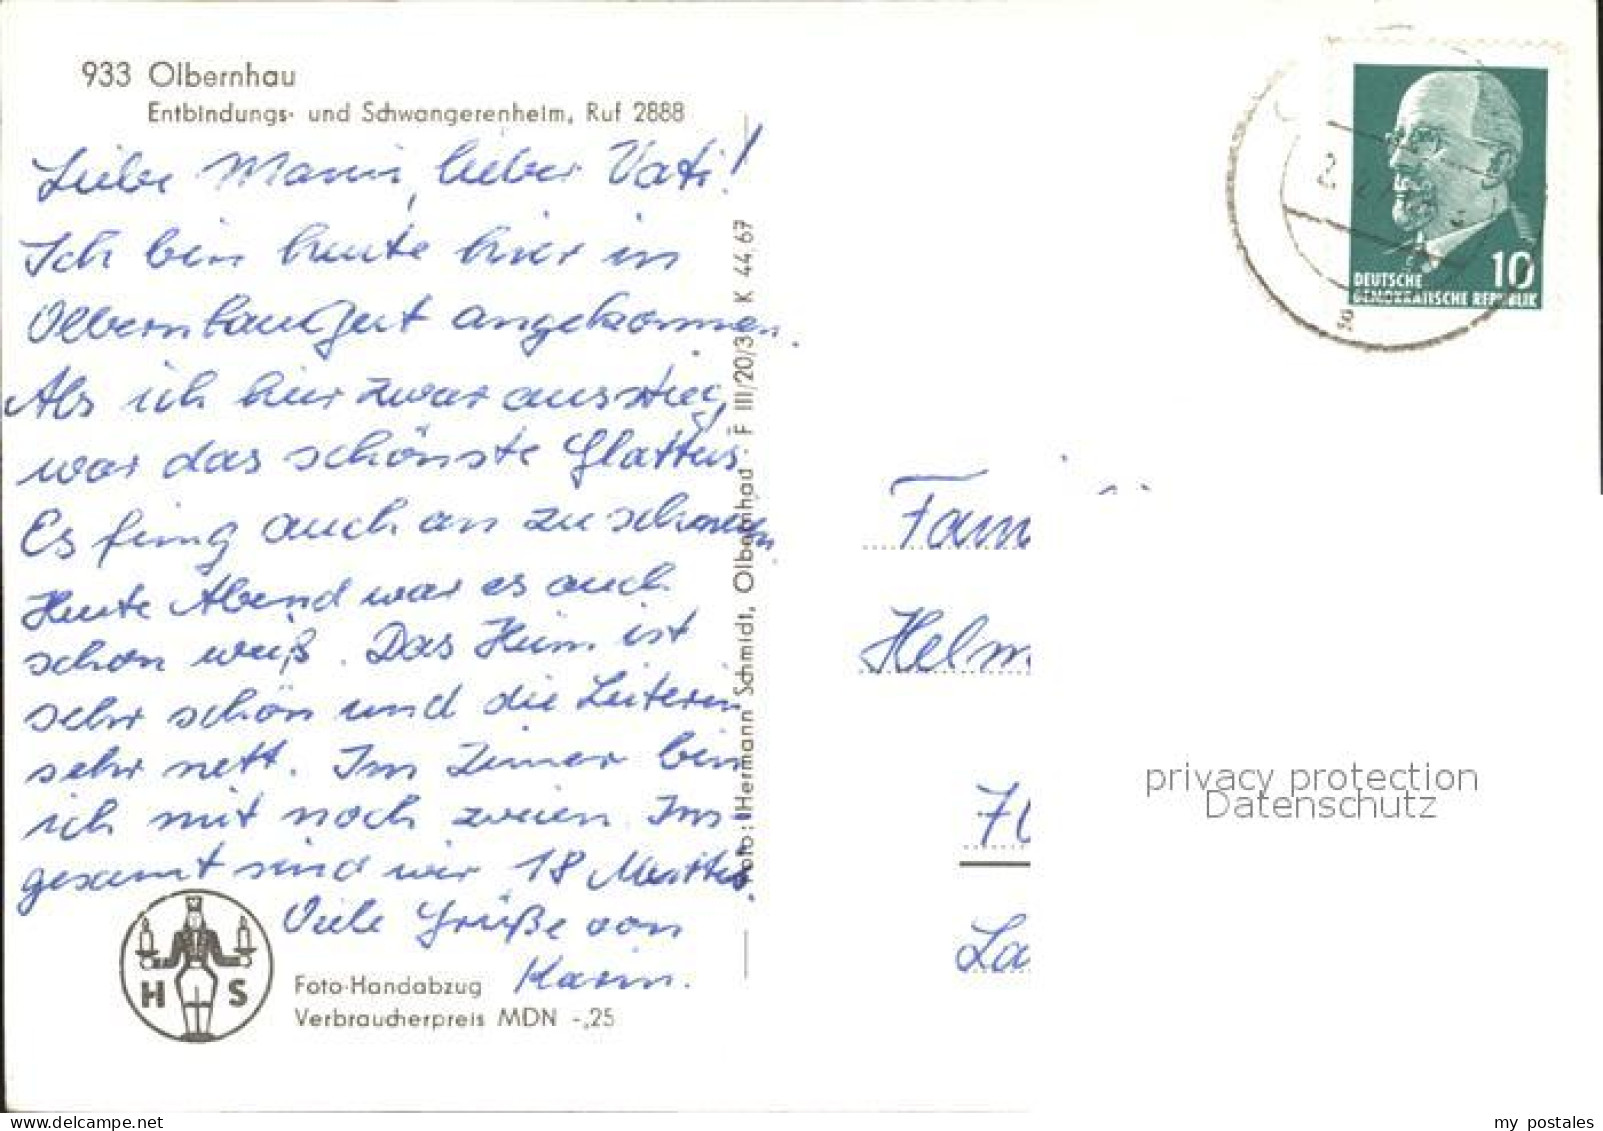 933 Olbernhau
Entbindungs- und Schwangerenheim, Ruf 2888
Liebe Mami, lieber Vati!
Ich bin heute hier in
Olbernhau gut angekommen.
Als ich hier zwar ausstieg,
war das schönste Glatteis.
Es fing auch an zu schneien.
Heute Abend war es auch
schon weiß. Das Heim ist
sehr schön und die Leiterin
sehr nett. Im Zimer bin
ich mit noch zweien. Ins-
gesamt sind wir 18 Muttis.
Viele Grüße von
Karin.
H S
Foto-Handabzug
Verbraucherpreis MDN -,25
Foto: Hermann Schmidt, Olbernhau · F III/20/3 K 44/67
DEUTSCHE
DEMOKRATISCHE REPUBLIK
10
Fam
Helm
70
La
privacy protection
Datenschutz
my postales
www.delcampe.net